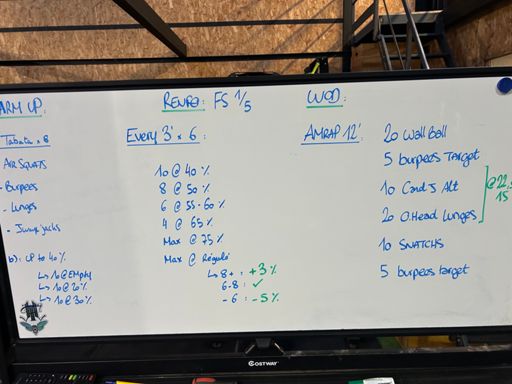 ARM UP.
Tabata x 8
AIR SQUATS
- Burpees
- Lunges
- Jump jacks
b): UP to 40%
↳ 10 @ EMpty
↳ 10 @ 20%
↳ 10 @ 30%
RENFO: FS 1/5
Every 3' x 6:
10 @ 40%
8 @ 50%
6 @ 55-60%
4 @ 65%
Max @ 75%
Max @ Régulé
↳ 8+ : +3%
6-8 : ✓
-6 : -5%
WOD:
AMRAP 12'
20 Wall Ball
5 burpees TARGET
10 Cand J Alt
20 O.Head Lunges
@ 22,5
15
10 SNATCHS
5 burpees target
COSTWAY